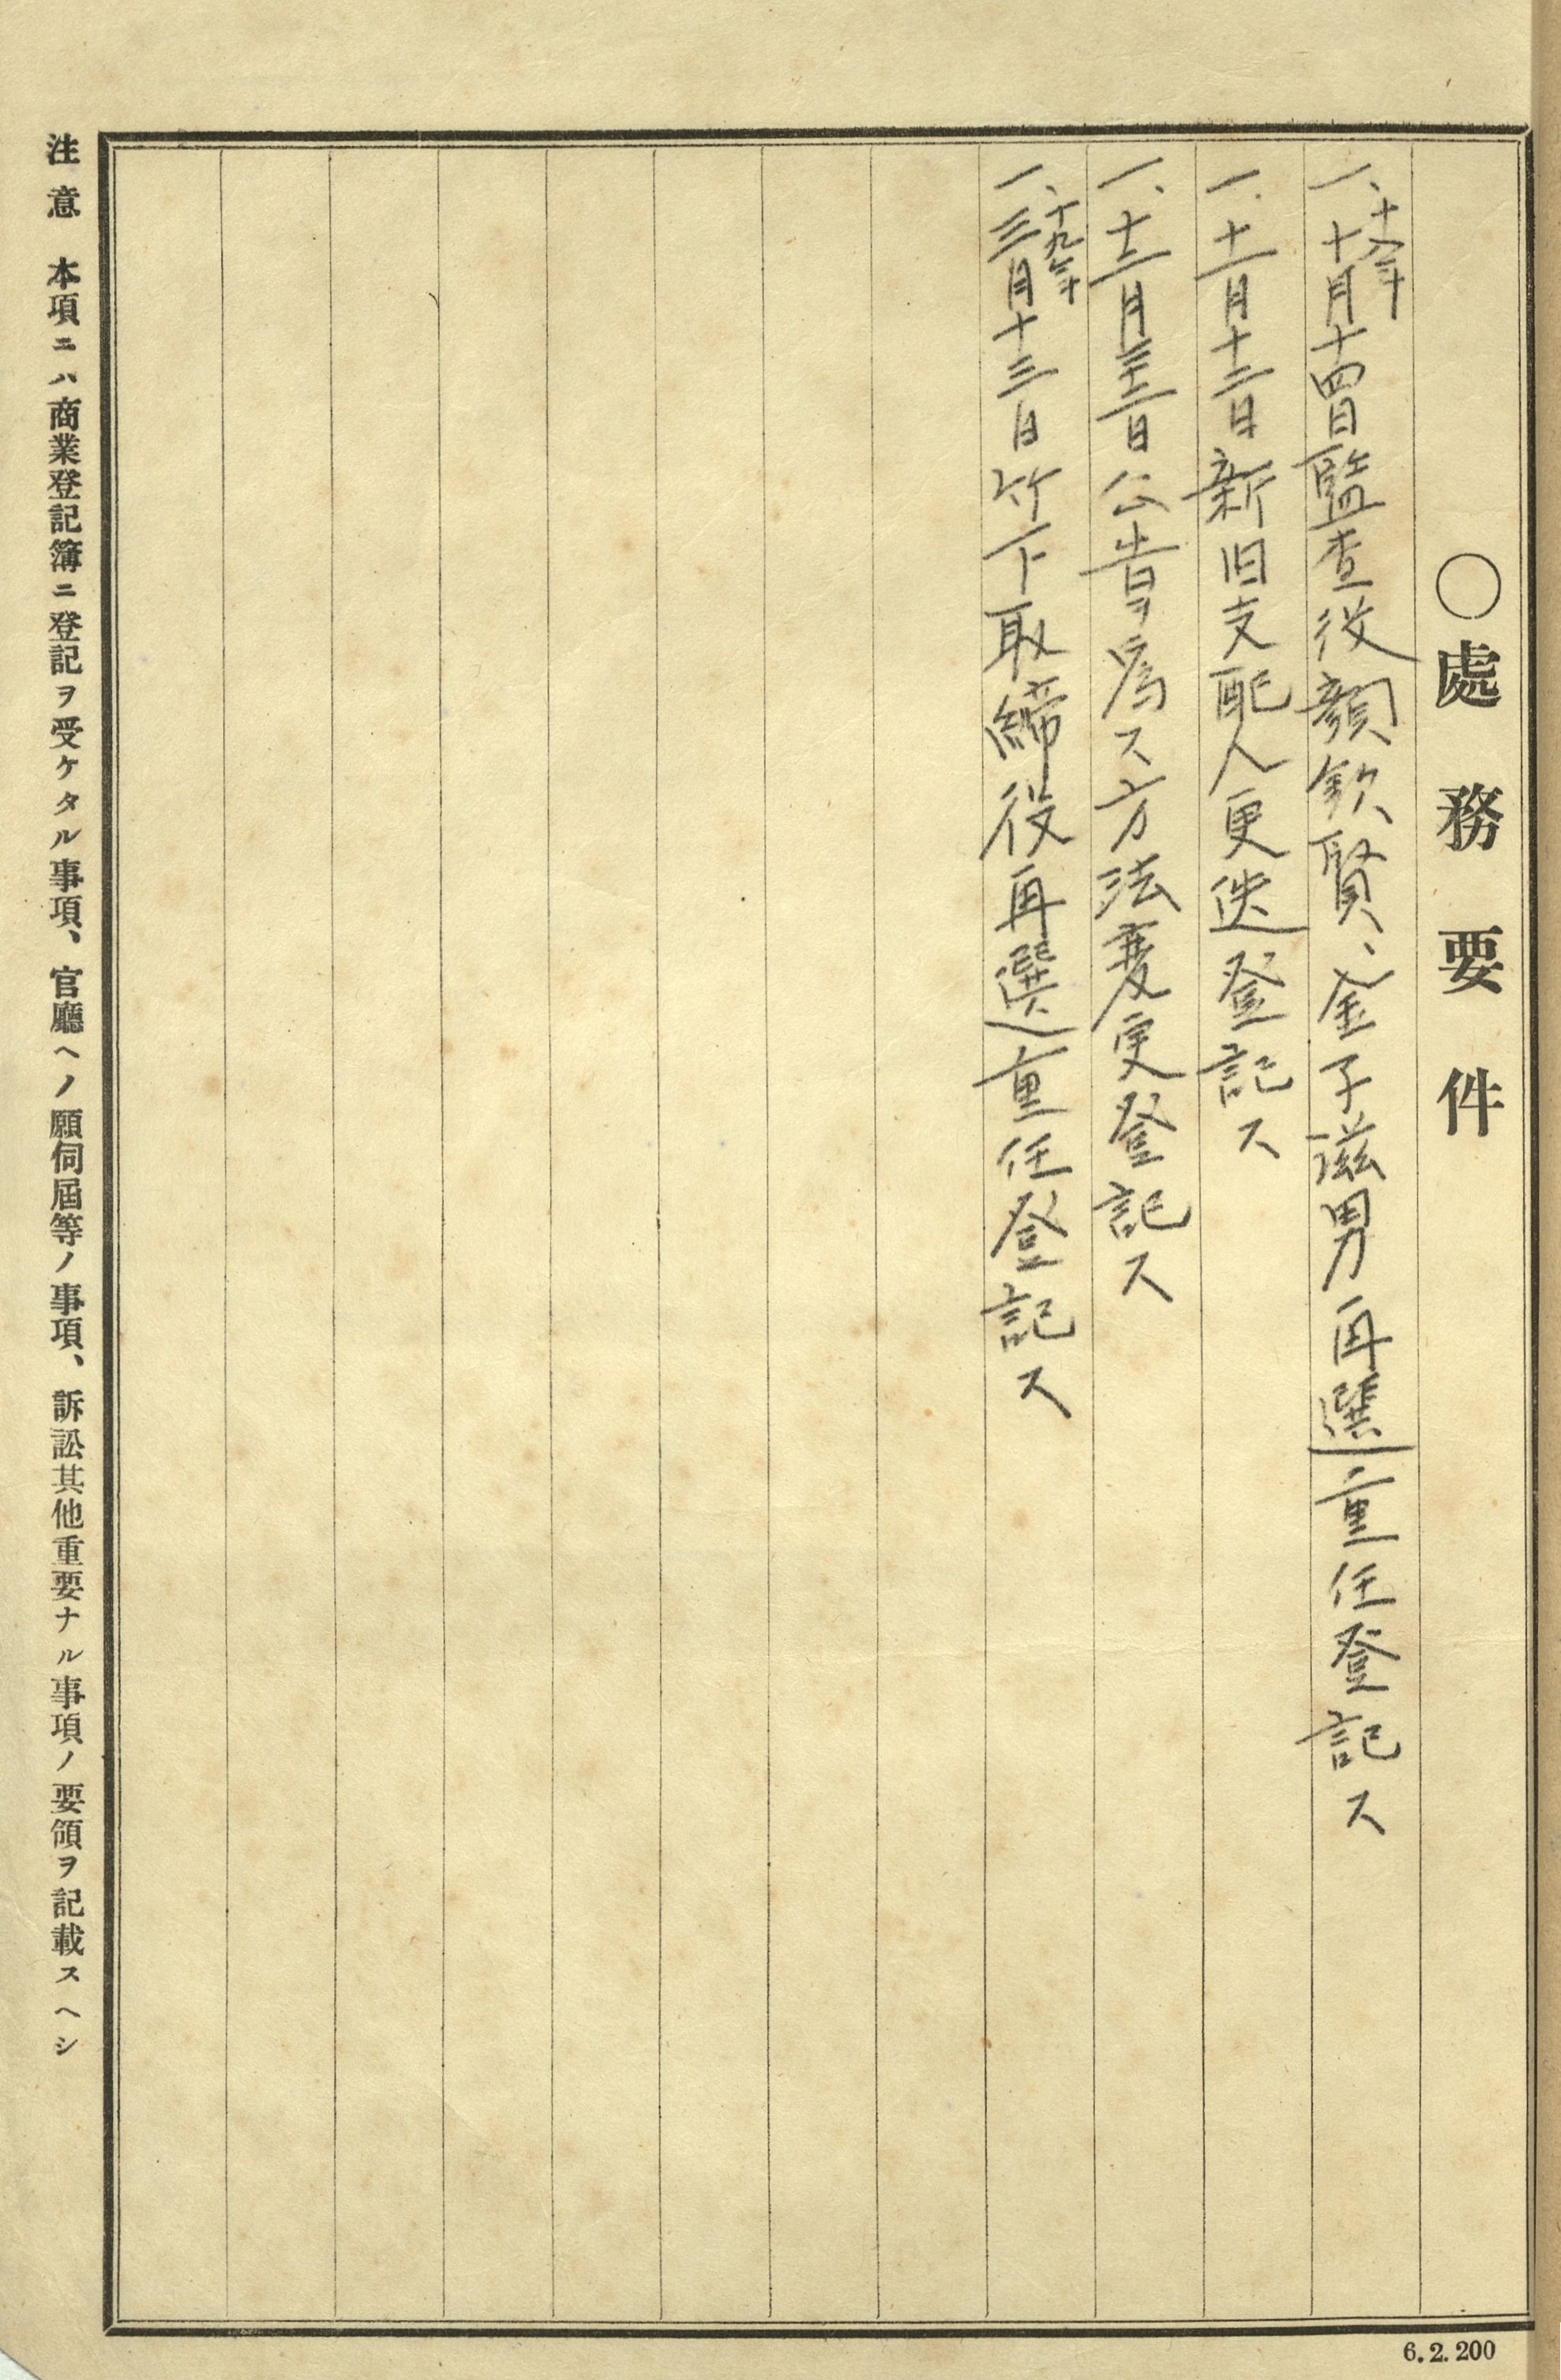 ○處務要件
一、十八年十月十四日監査役顔欽賢、金子滋男再選重任登記ス
一、十一月十二日新旧支配人更迭登記ス
一、十二月二十二日公告ヲ爲ス方法変更登記ス
一、十九年三月十三日竹下取締役再選重任登記ス
注意 本項ニハ商業登記簿ニ登記ヲ受ケタル事項、官廳ヘノ願伺屆等ノ事項、訴訟其他重要ナル事項ノ要領ヲ記載スヘシ
6.2.200